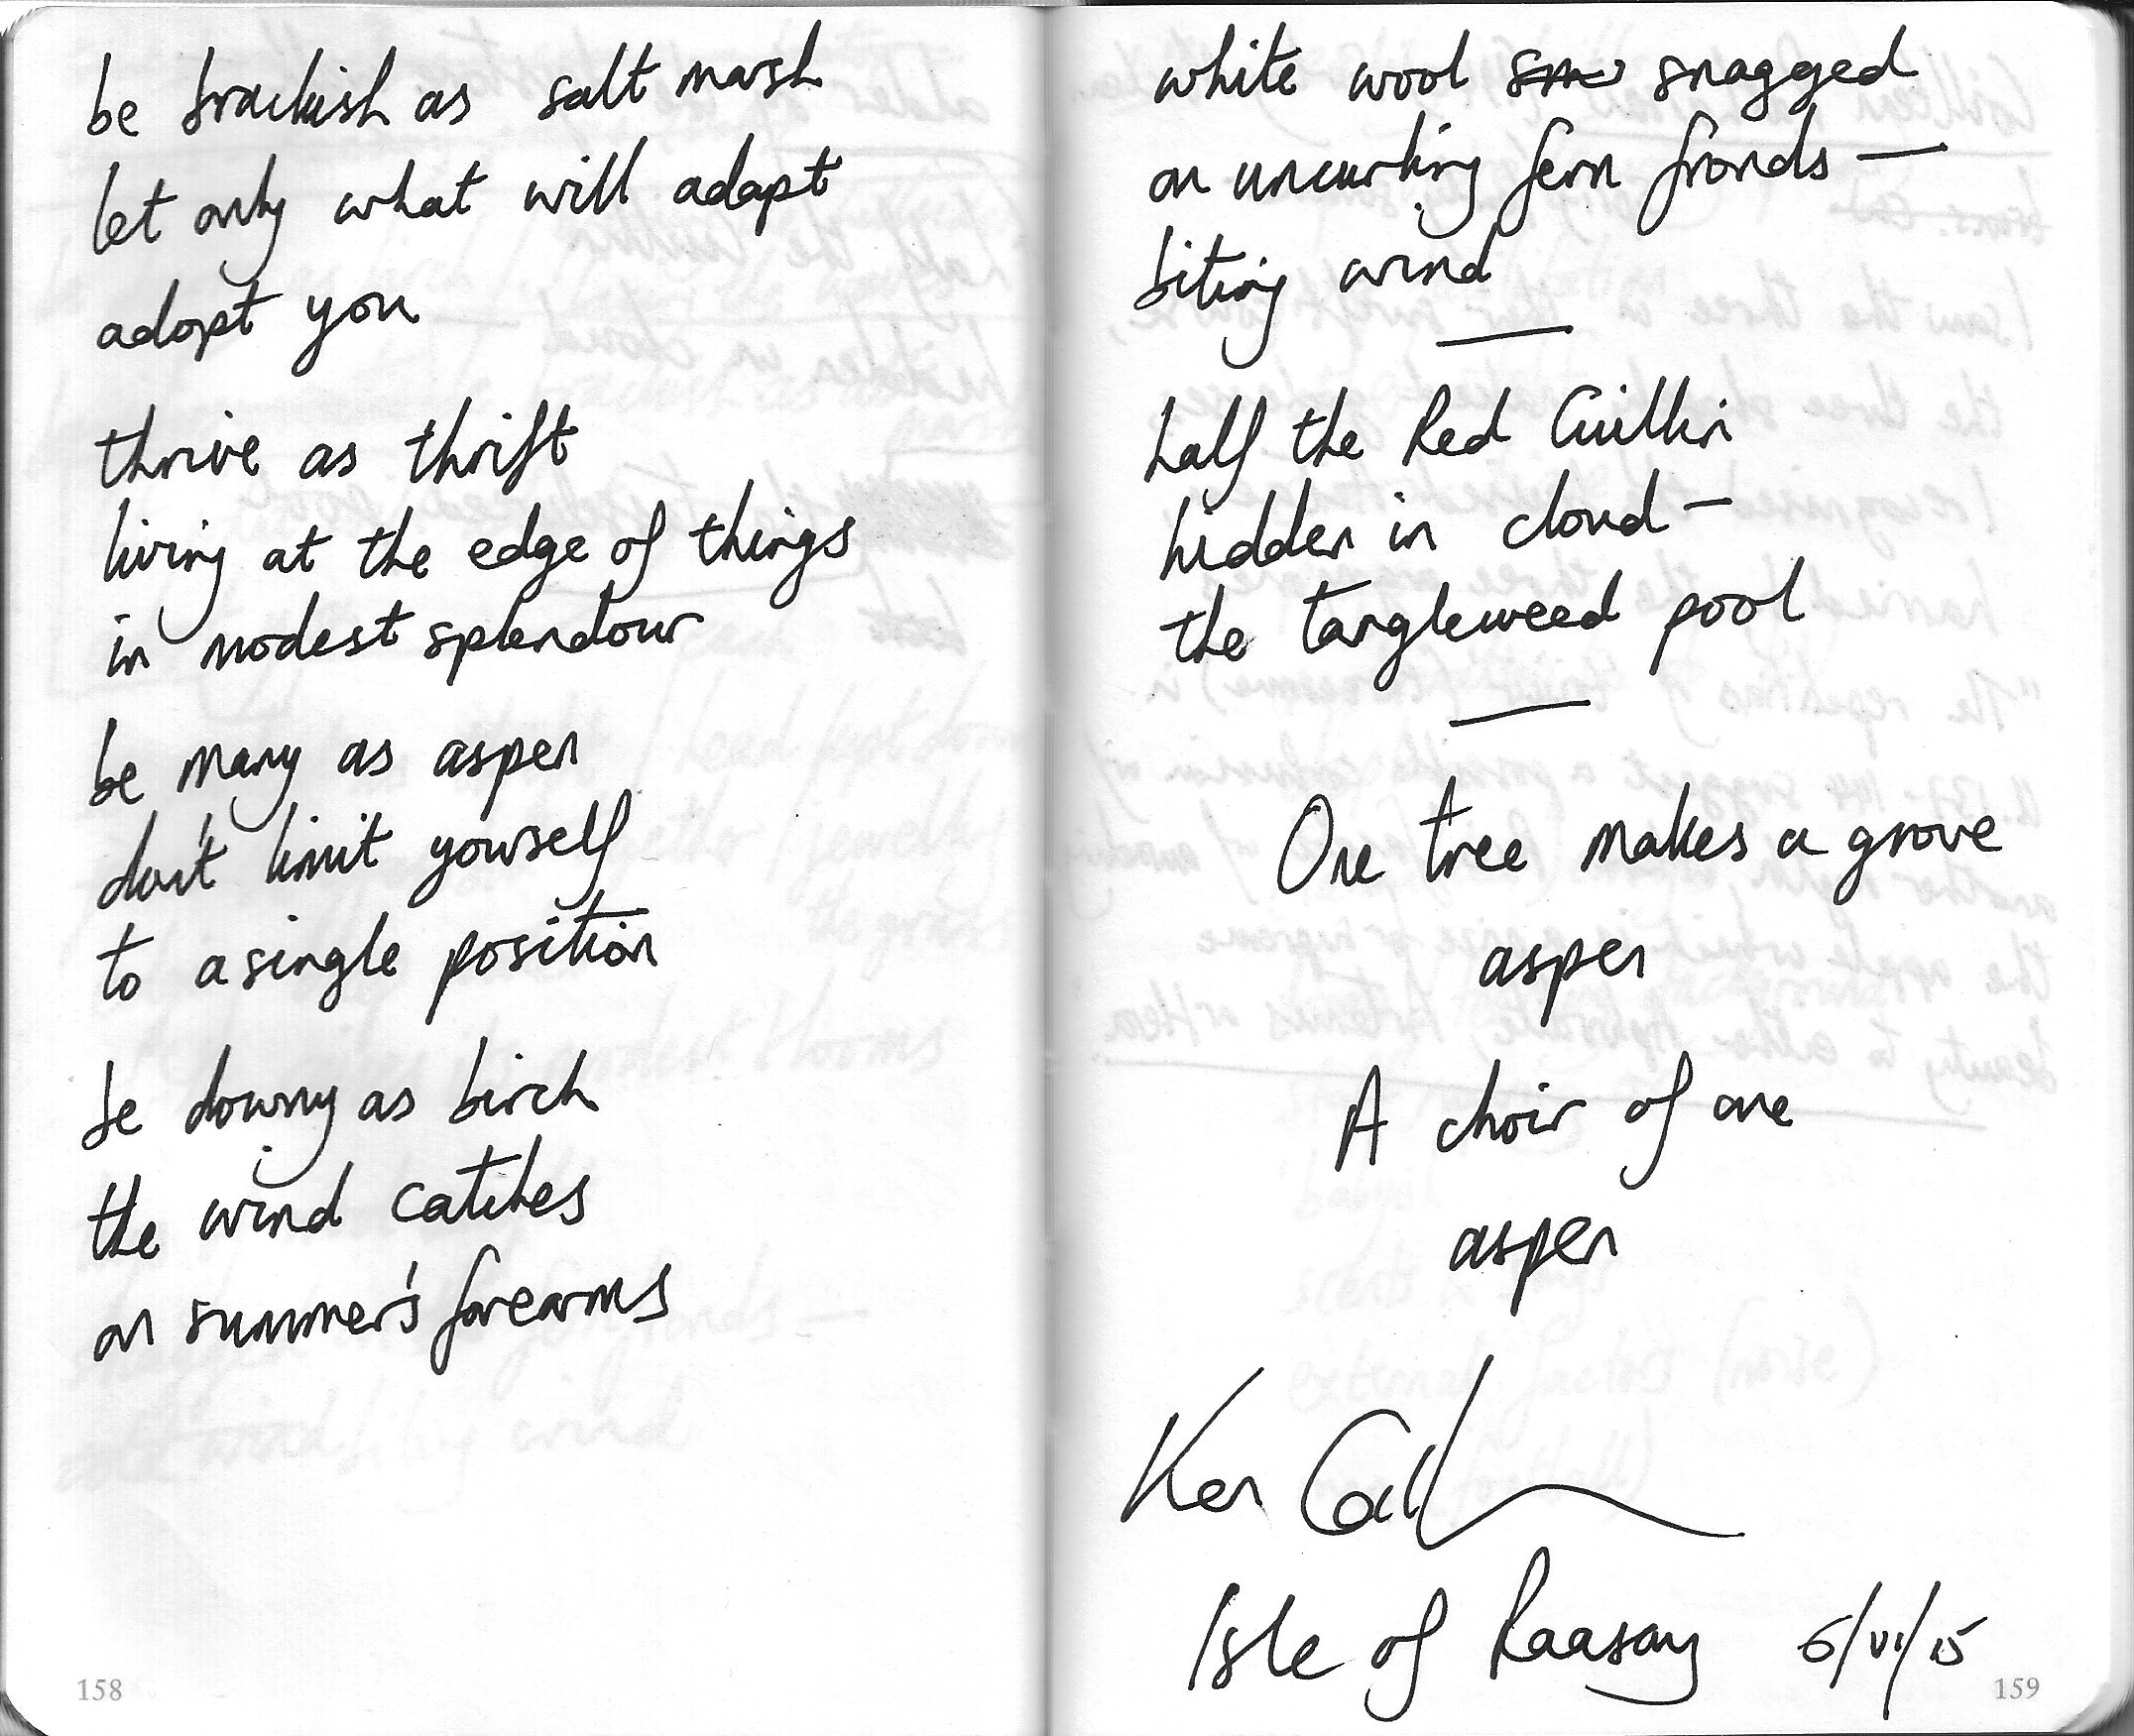 be brackish as salt marsh
let only what will adapt
adopt you
thrive as thrift
living at the edge of things
in modest splendour
be many as aspen
don't limit yourself
to a single position
be downy as birch
the wind catches
on summer's forearms
158
white wool snagged
on uncurling fern fronds —
biting wind
half the Red Cuillin
hidden in cloud —
the tangleweed pool
One tree makes a grove
aspen
A choir of one
aspen
Ken
Isle of Raasay 6/vi/15
159